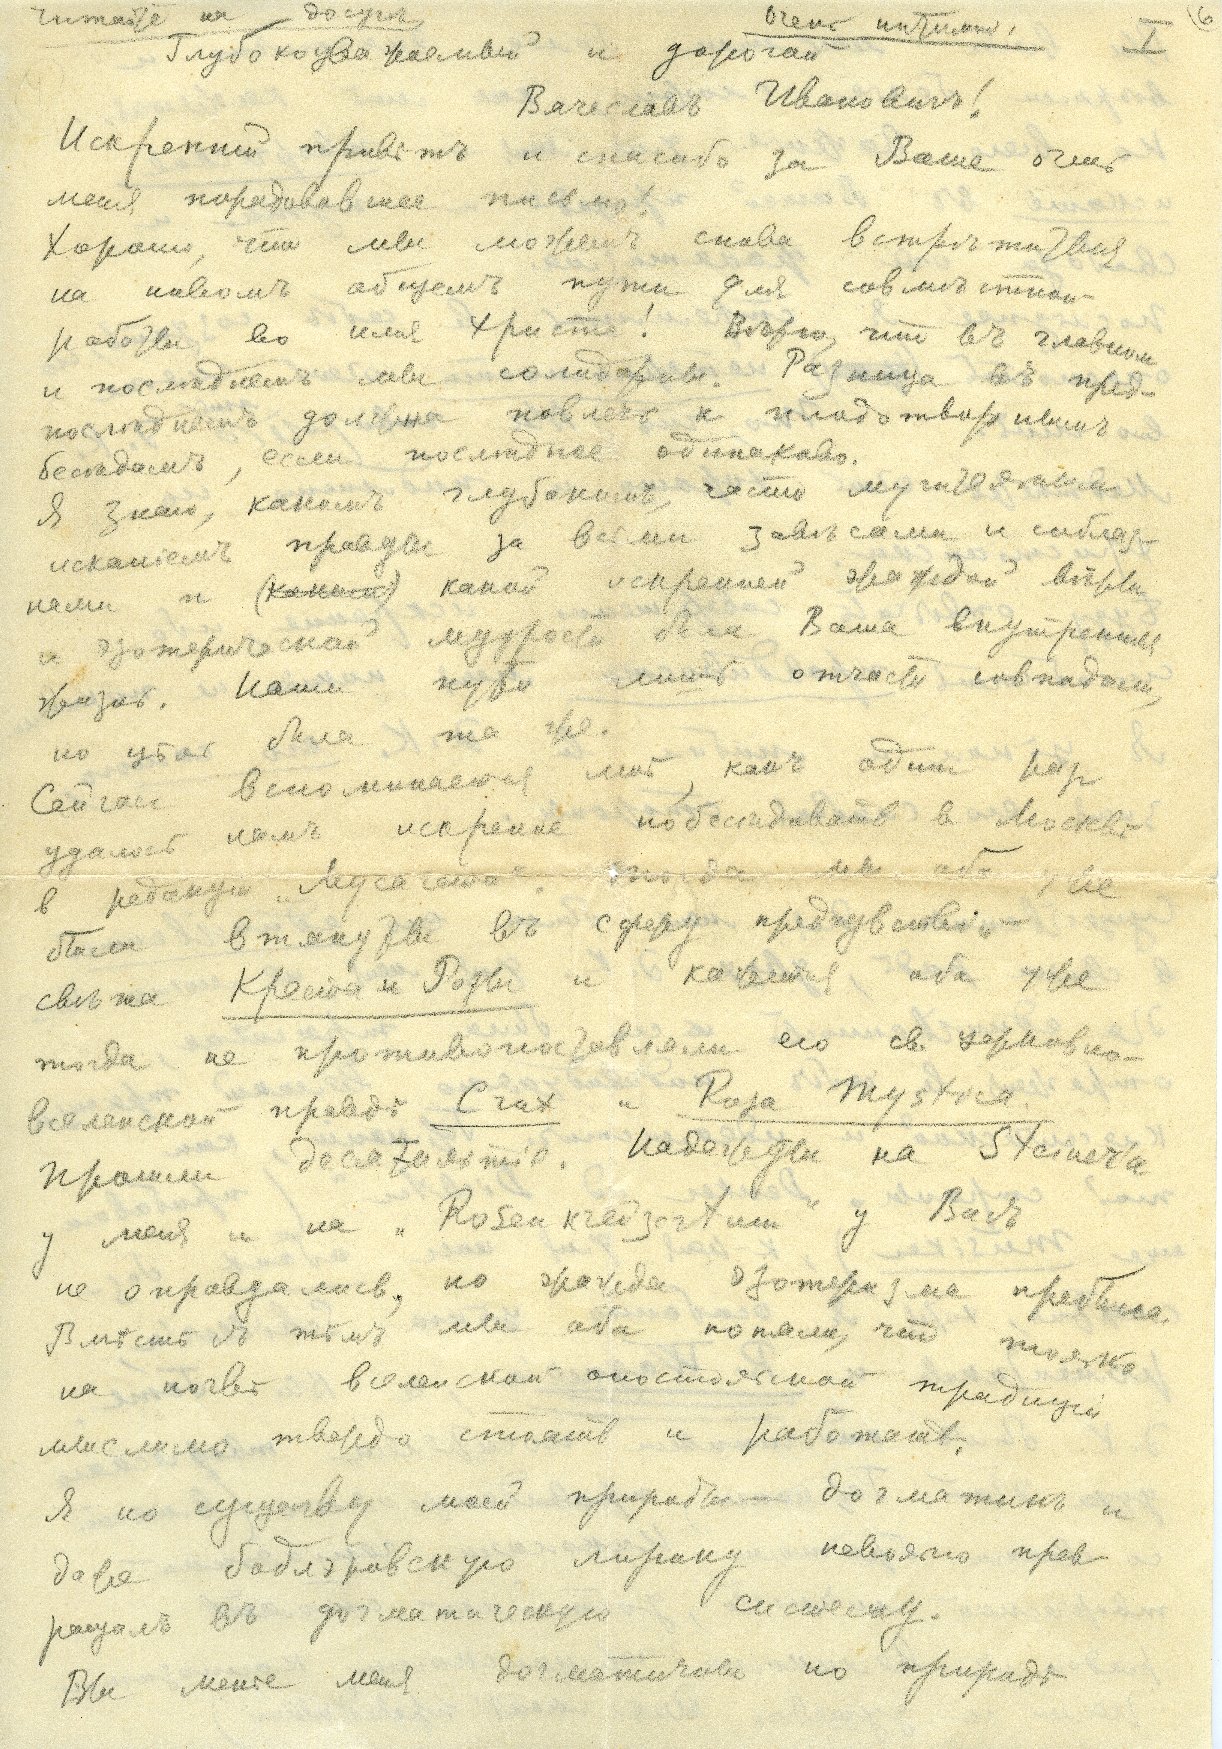 Читайте на досугѣ,
очень интимно.
I
16
Глубокоуважаемый и дорогой
Вячеславъ Ивановичъ!
Искренній привѣтъ и спасибо за Ваше очень
меня порадовавшее письмо!
Хорошо, что мы можемъ снова встрѣтиться
на новомъ общемъ пути для совмѣстной
работы во имя Христа! Вѣрю, что въ главном
и послѣднемъ мы солидарны. Разница въ пред-
послѣднемъ должна повлечь к плодотворнымъ
бесѣдамъ, если послѣднее одинаково.
Я знаю, какимъ глубокимъ, часто мучительным
исканіемъ правды за всѣми завѣсами и соблаз-
нами и (какой) какой искренней жаждой вѣры
и эзотерической мудрости была Ваша внутренняя
жизнь. Наши пути лишь отчасти совпадали,
но цѣль была та же.
Сейчас вспоминается мнѣ, какъ один раз
удалось намъ искренне побесѣдовать в Москвѣ
в редакции „Мусагета". Тогда мы оба уже
были втянуты въ сферу предчувствій
свѣта Креста и Розы и кажется оба уже
тогда не противопоставляли его св. церковно-
вселенской правдѣ Crux и Rosa Mystica.
Прошли десятилѣтія. Надежды на Steiner'a
у меня и на „Rosenkreuzertum" у Васъ
не оправдались, но жажда эзотеризма пребыла.
Вмѣстѣ съ тѣмъ мы оба поняли, что только
на почвѣ вселенской апостольской традиціи
мыслимо твердо стоять и работать.
Я по существу моей природы — догматикъ и
даже бодлэровскую лирику невольно прев-
ращалъ въ догматическую систему.
Вы менѣе меня догматичны по природѣ